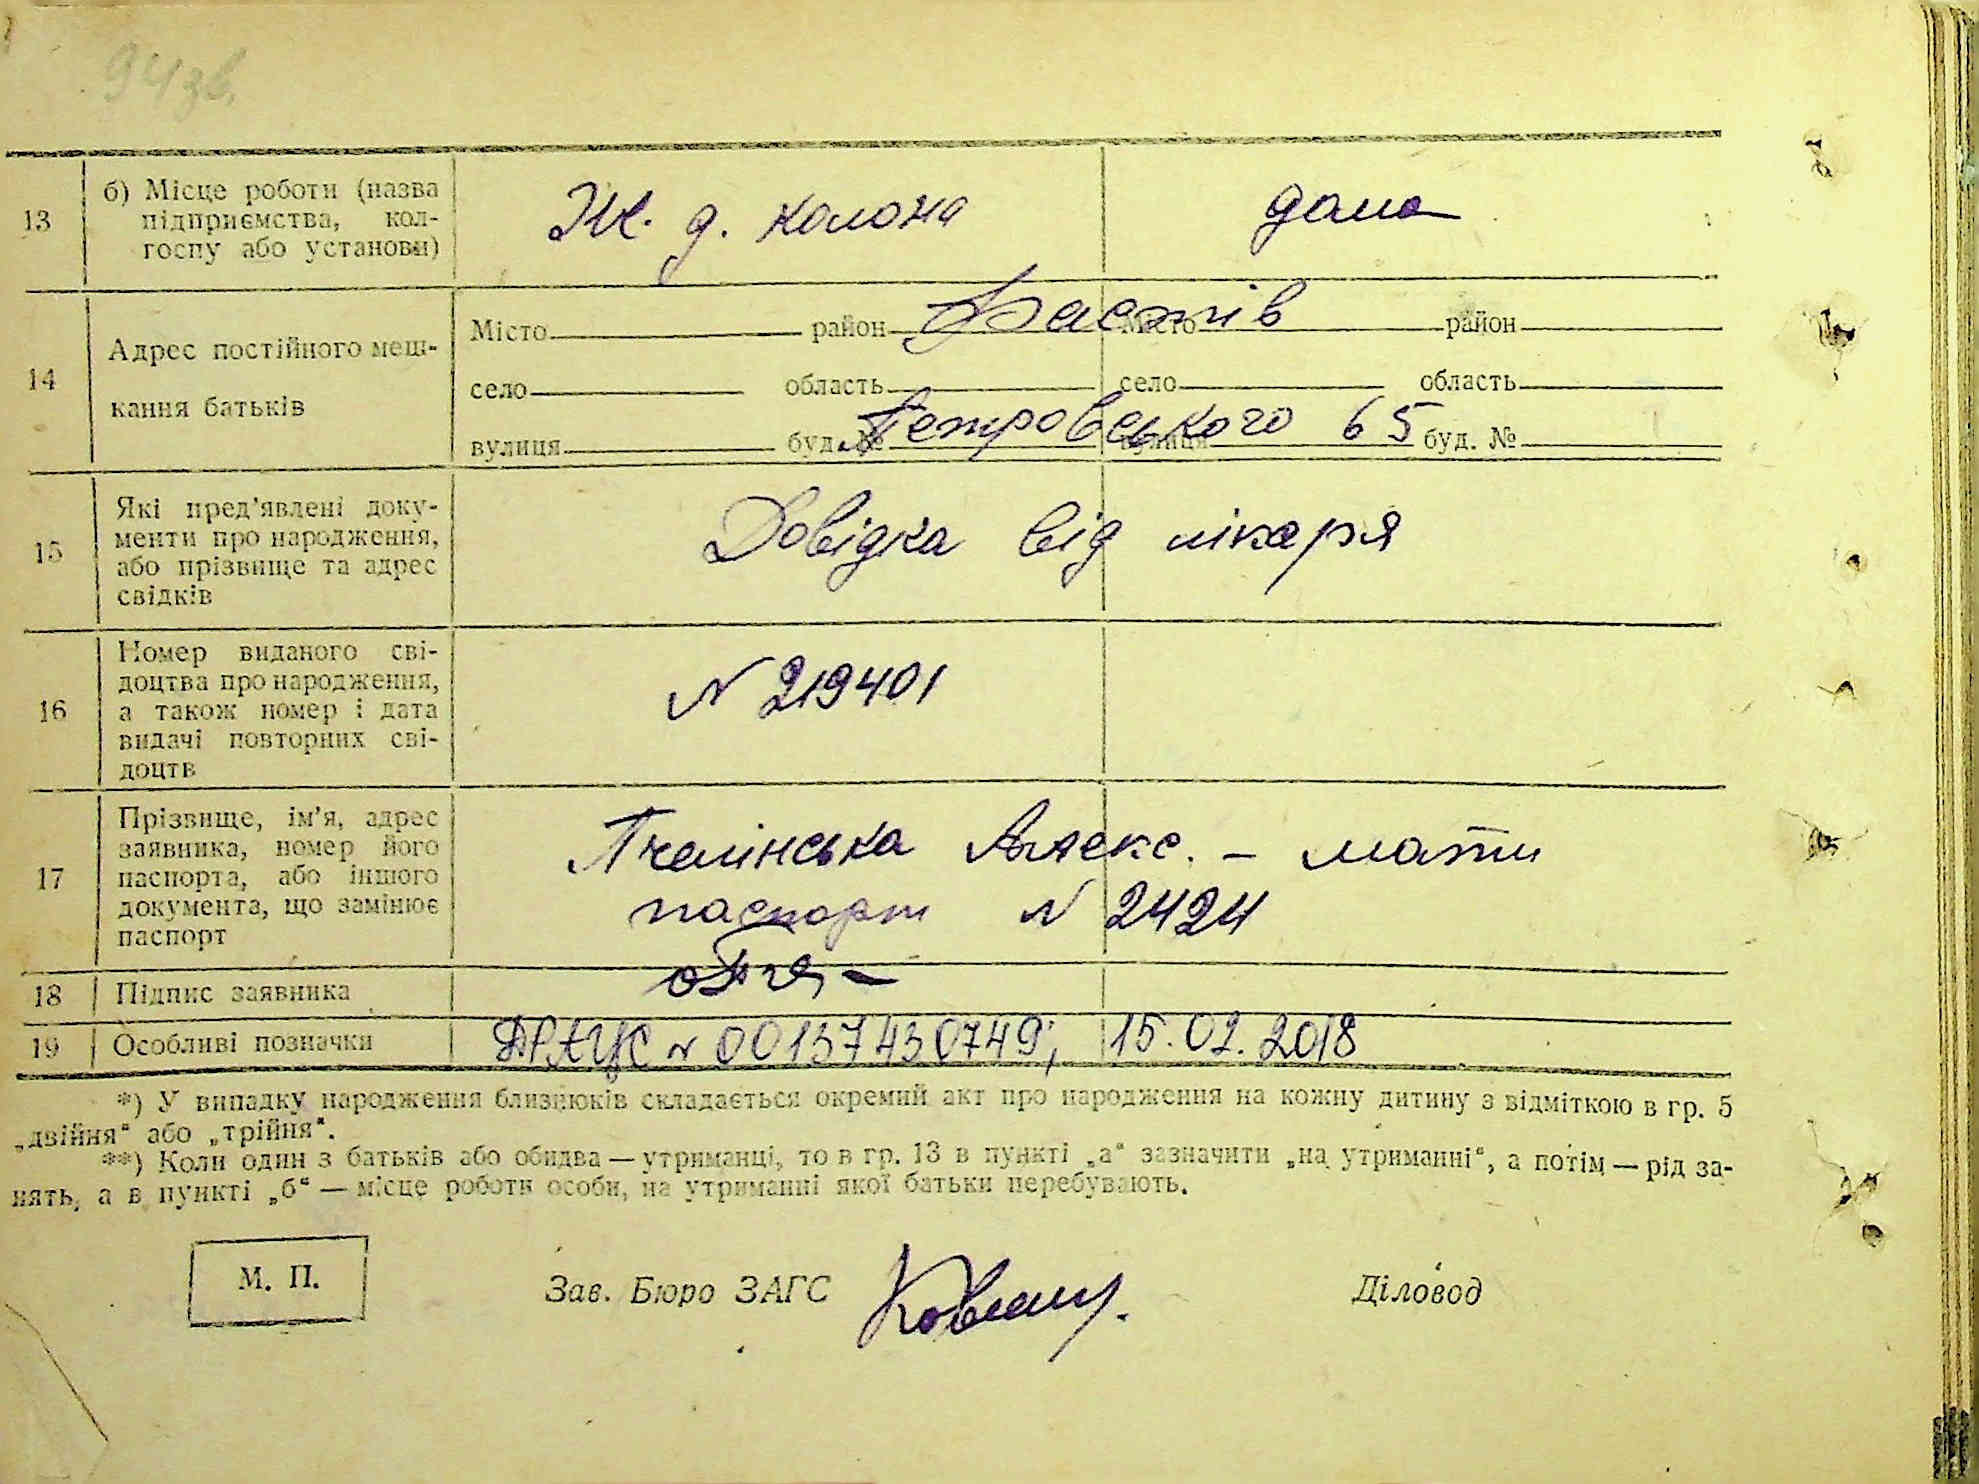 94 зв.
13
б) Місце роботи (назва
підприємства, кол-
госпу або установи)
Ж. д. колона
дома
14
Адрес постійного меш-
кання батьків
Місто район Місто район
Фастів
село область село область
вулиця буд. № вулиця буд. №
Петровського 65
15
Які пред'явлені доку-
менти про народження,
або прізвище та адрес
свідків
Довідка від лікаря
16
Номер виданого сві-
доцтва про народження,
а також номер і дата
видачі повторних сві-
доцтв
N 219401
17
Прізвище, ім'я, адрес
заявника, номер його
паспорта, або іншого
документа, що замінює
паспорт
Пчелінська Алекс. – мати
паспорт N 2424
18 Підпис заявника
19 Особливі позначки
ДРАЦС N 00137430749; 15.02.2018
*) У випадку народження близнюків складається окремий акт про народження на кожну дитину з відміткою в гр. 5
„двійня“ або „трійня“.
**) Коли один з батьків або обидва — утриманці, то в гр. 13 в пункті „а“ зазначити „на утриманні“, а потім — рід за-
нять, а в пункті „б“ — місце роботи особи, на утриманні якої батьки перебувають.
М. П.
Зав. Бюро ЗАГС
Діловод